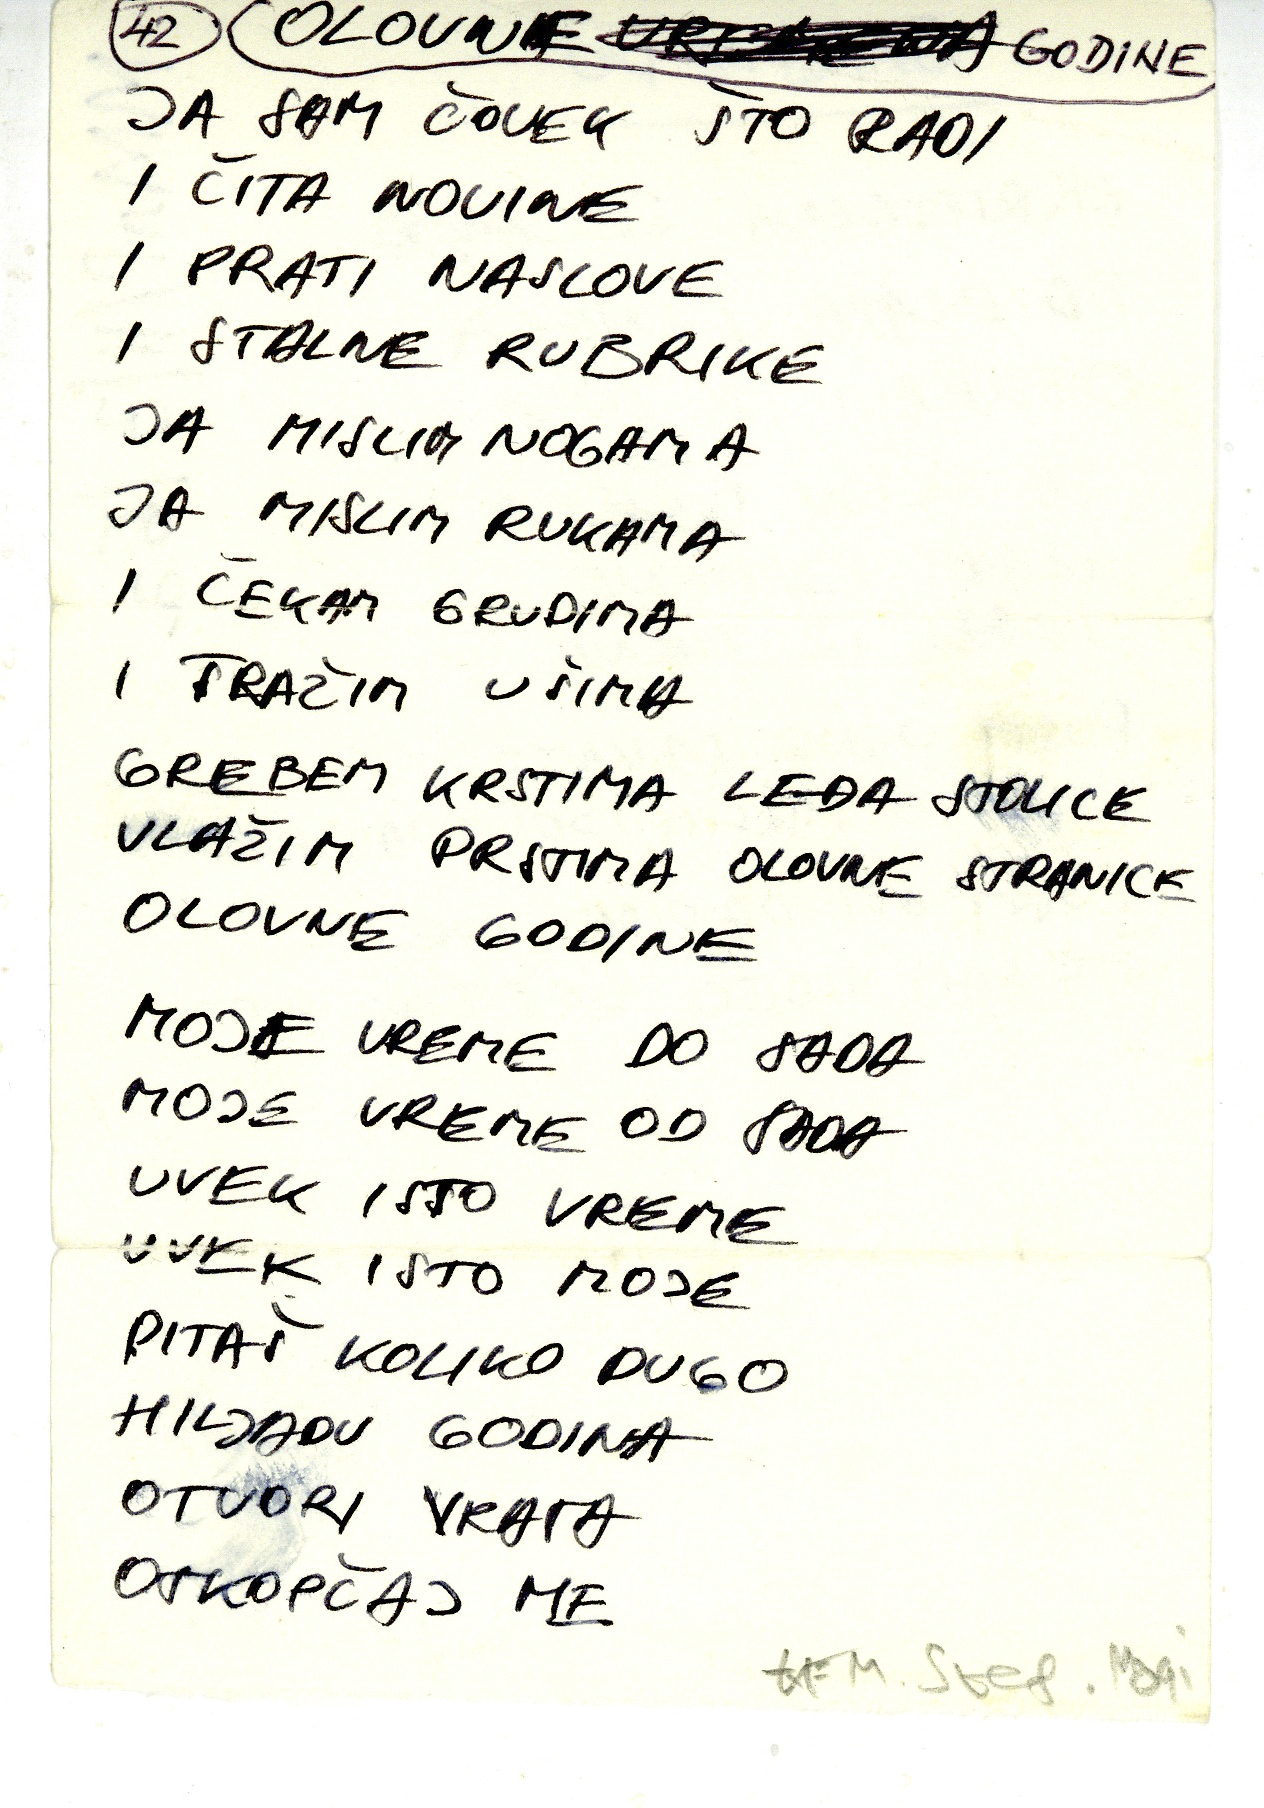 42 OLOVNE GODINE
JA SAM ČOVEK ŠTO RADI
I ČITA NOVINE
I PRATI NASLOVE
I STALNE RUBRIKE
JA MISLIM NOGAMA
JA MISLIM RUKAMA
I ČEKAM GRUDIMA
I TRAŽIM UŠIMA
GREBEM KRSTIMA LEĐA STOLICE
VLAŽIM PRSTIMA OLOVNE STRANICE
OLOVNE GODINE
MOJE VREME DO SADA
MOJE VREME OD SADA
UVEK ISTO VREME
UVEK ISTO MOJE
PITAŠ KOLIKO DUGO
HILJADU GODINA
OTVORI VRATA
OTKOPČAJ ME